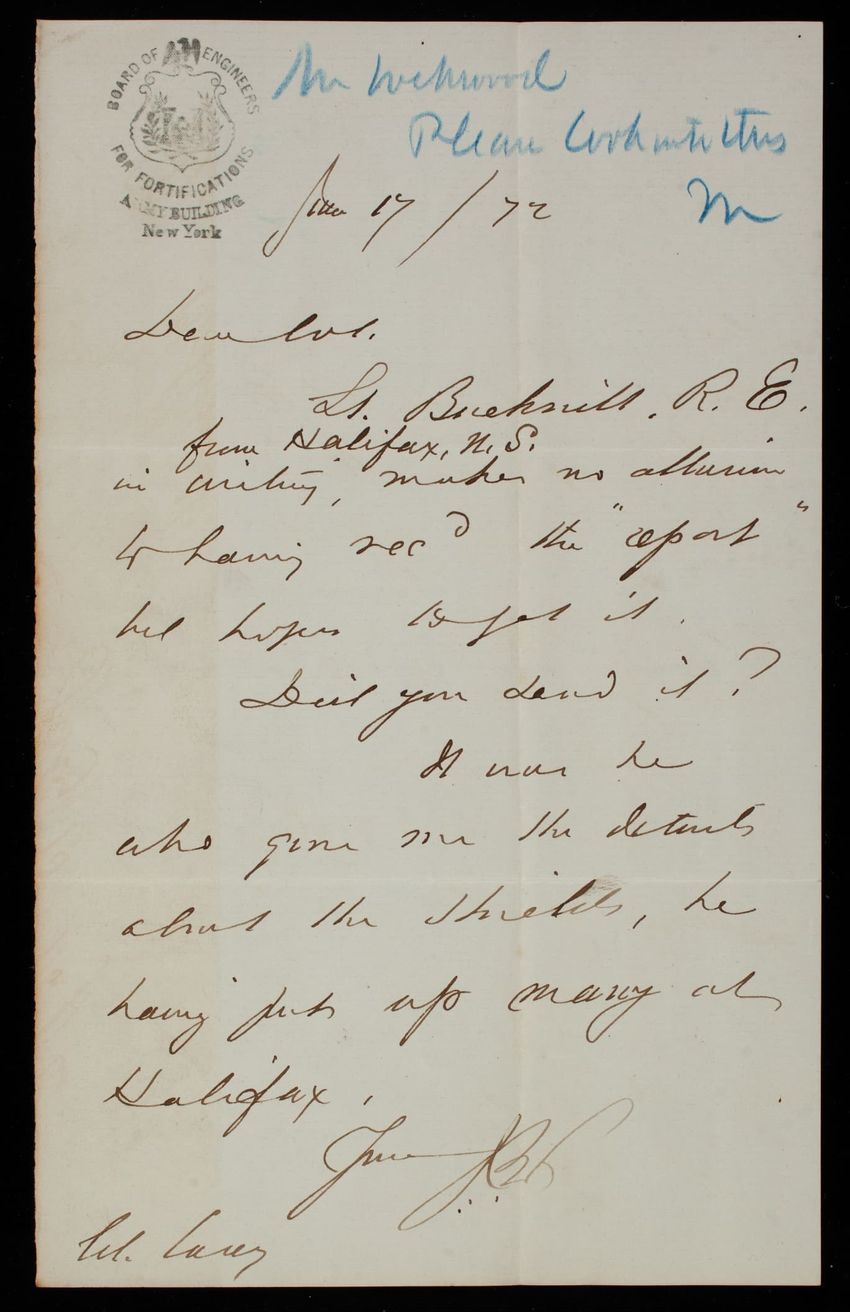 BOARD OF ENGINEERS
FOR FORTIFICATIONS
ARMY BUILDING
New York
Mr Lockwood
Please look into this
M
Jan 17/72
Dear Col.
Lt. Bucknill, R. E.
from Halifax, N. S.
in writing, makes no allusion
to having rec'd the "report"
but hopes to get it.
Did you send it?
It was he
who gave me the details
about the shields, he
having put up many at
Halifax.
Yours
Col. Casey